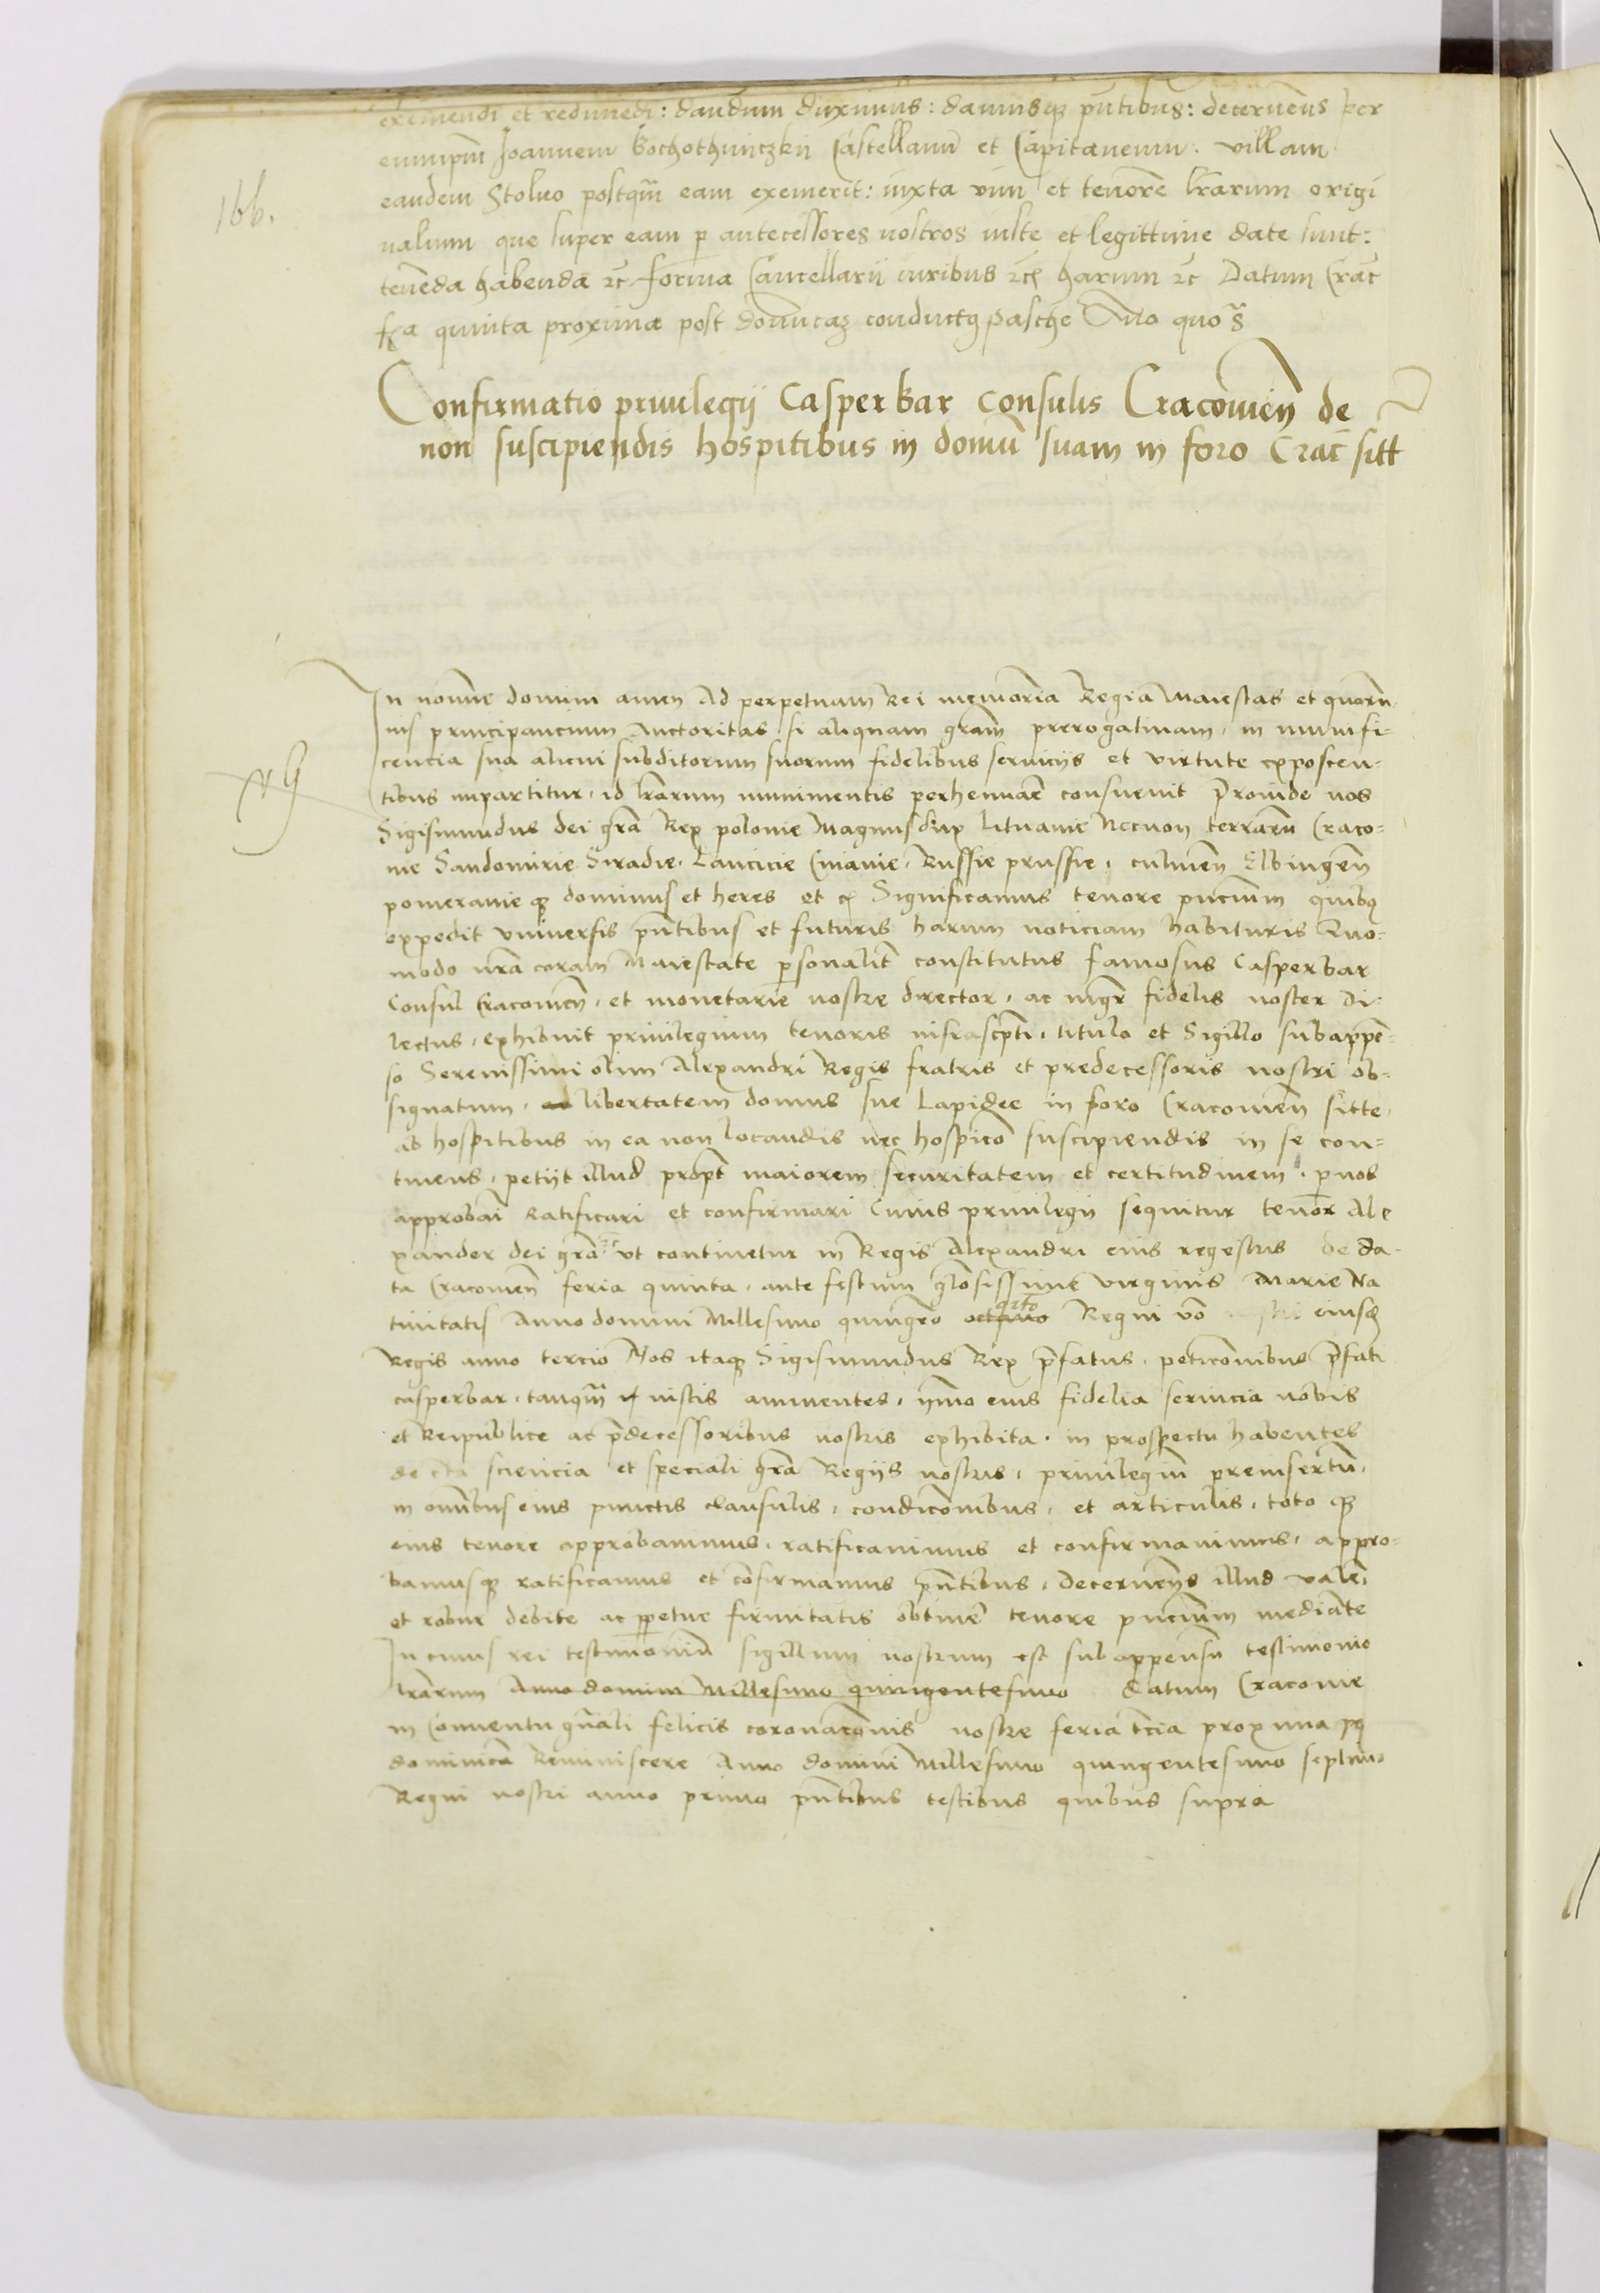 eximendi et redimēdi: dandum duximus: damusq̷ pn̄tibus: decernens per
eumipm̄ Joannem Kochothniczkii Castellanū et Capitaneum. villam
166.
eandem Stolvo postqm̄ eam exemerit: iuxta vim et tenorē lr̄arum origi
nalium que super eam p̱ antecessores nostros iuste et legittime date sunt:
tenēda habenda ꝛc̄ forma Cancellarii iuribus ꝛc̄ harum ꝛc̄ Datum Crac̄
quinta proxima post conductꝰ pasche Āno quo s̄
Confirmatio priuilegij Casper bar Consulis Cracouien̄ de
non suscipiendis hospitibus in domū suam in foro Crac̄ sitt
In nomine domini amen Ad perpetuam Rei memoriā Regia Maiestas et quorū
uis principancium Auctoritas si aliquam grām prerogatiuam, in munifi-
cencia sua alicui subditorum suorum fidelibus seruicijs et virtute exposcen-
tibus impartitur, id lr̄arum munimentis perhennarē consueuit Proinde nos
Sigismundus dei grā Rex polonie Magnus dux lituanie Necnon terrarū Craco-
uie Sandomirie Siradie. Lancicie Cuiauie. Russie prussie, culmen̄ Elbingen̄
pomeranie q̷ dominus et heres et c̄ Significamus tenore pn̄cium quibꝰ
expedit vniuersis pn̄tibus et futuris harum noticiam habituris Quo-
modo nr̄a coram Maiestate p̱sonalit̄ constitutus famosus Casper bar
Consul Cracouien̄. et monetarie nostre director, ac nigr̄ fidelis noster di-
lectus, exhibuit priuilegium tenoris infrascpti, titulo et Sigillo subappē-
so Serenissimi olim Alexandri Regis fratris et predecessoris nostri ob-
signatum, libertatem domus sue Lapidee in foro Cracouien̄ sitte,
ab hospitibus in ea non locandis nec hospicō suscipiendis in se con-
tinens, petijt illud propt̄ maiorem securitatem et certitudinem, p̱ nos
approbari Ratificari et confirmari Cuius priuilegii sequitur tenor Ale
xander dei grā ꝛc̄ vt continetur in Regis Alexandri eius regestris de da-
ta Cracouien̄ feria quinta, ante festum glōsissime virginis Marie Na
tiuitatis Anno domini Millesimo quingēo octauo Regni vō eiusd̄
Regis anno tercio Nos itaq̷ Sigismundus Rex p̄fatus, peticōnibus p̄fati
casper bar, tanqm̄ iustis annuentes, ymo eius fidelia seruicia nobis
et Reipublice ac p̄decessoribus nostris exhibita, in prospectu habentes
de cta sciencia et speciali grā Regijs nostris, priuilegiū preinsertū,
in omnībus eius punctis clausulis, condicōnibus, et articulis, toto q̷
eius tenore approbauimus, ratificauimus et confirmauimus, appro-
bamus q̷ ratificamus et cōfirmamus pn̄tibus, decernens illud valē,
et robur debite ac p̱petue firmitatis obtinē tenore pn̄cium mediante
In cuius rei testimoniū sigillum nostrum est subappensū testimonio
lr̄arum Anno domini Millesimo quingentesimo Datum Cracouie
in Conuentu gn̄ali felicis coronacōnis nostre feria tcia proxima pꝰ
dominicā Reminiscere Anno domini Millesimo quingentesimo septimo
Regni nostri anno primo pn̄tibus testibus quibus supra